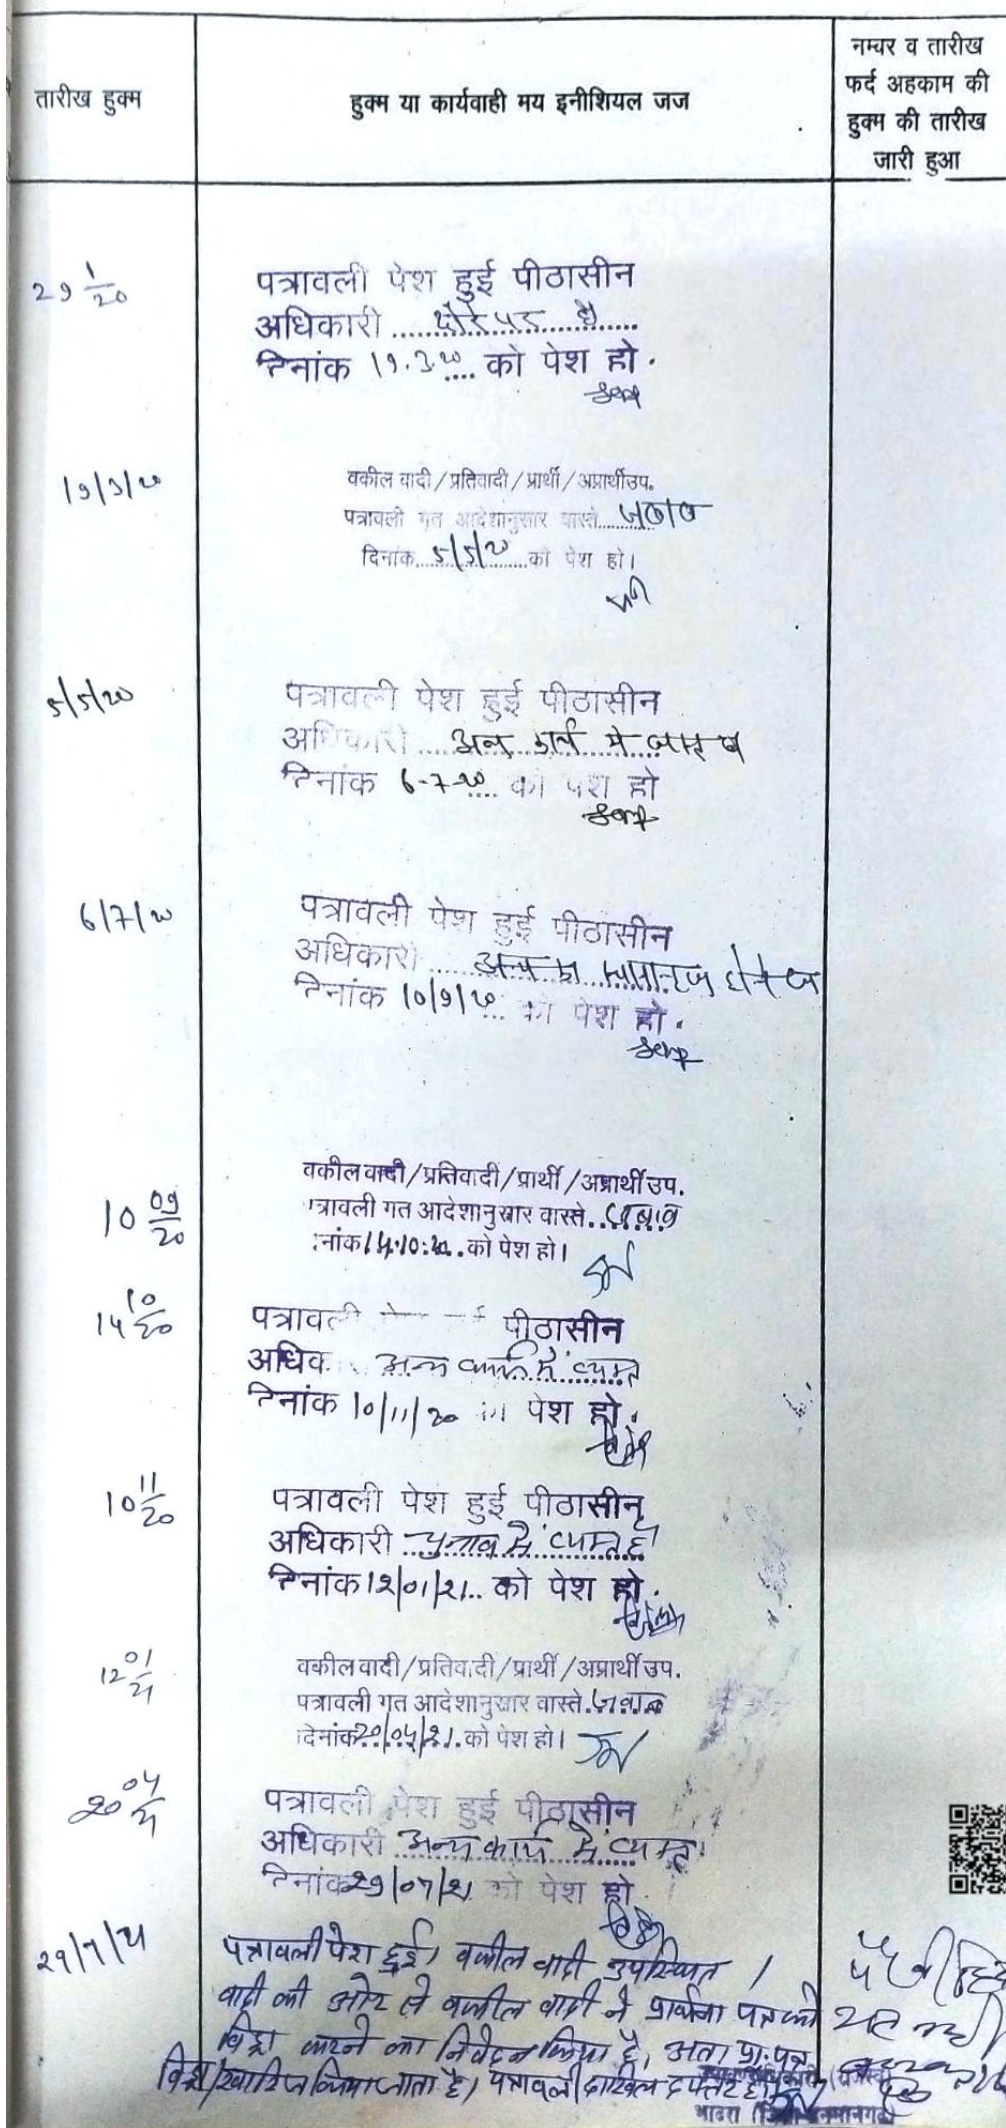 तारीख हुक्म
हुक्म या कार्यवाही मय इनीशियल जज
नम्बर व तारीख
फर्द अहकाम की
हुक्म की तारीख
जारी हुआ
29 1/20
पत्रावली पेश हुई पीठासीन
अधिकारी ...... दौरे पर है ......
दिनांक 19.3.20 को पेश हो.
19/3/20
वकील वादी/प्रतिवादी/प्रार्थी/अप्रार्थीउप.
पत्रावली गत आदेशानुसार वास्ते ..... जवाब
दिनांक...5/5/20...को पेश हो।
5/5/20
पत्रावली पेश हुई पीठासीन
अधिकारी ....
दिनांक 6-7-20 को पेश हो
6/7/20
पत्रावली पेश हुई पीठासीन
अधिकारी ....
दिनांक 10/9/20 को पेश हो.
10 09/20
वकील वादी/प्रतिवादी/प्रार्थी/अप्रार्थीउप.
त्रावली गत आदेशानुसार वास्ते.. जवाब
नांक 14.10.20. को पेश हो।
14 10/20
पत्रावली पीठासीन
अधिक अन्य कार्य में व्यस्त
दिनांक 10/11/20 पेश हो.
10 11/20
पत्रावली पेश हुई पीठासीन
अधिकारी चुनाव में व्यस्त है
दिनांक 12/01/21.. को पेश हो.
12 01/21
वकील वादी/प्रतिवादी/प्रार्थी/अप्रार्थीउप.
पत्रावली गत आदेशानुसार वास्ते. जवाब
दिनांक 20/04/21. को पेश हो।
20 04/21
पत्रावली पेश हुई पीठासीन
अधिकारी अन्य कार्य में व्यस्त
दिनांक 29/07/21 को पेश हो
29/7/21
पत्रावली पेश हुई। वकील वादी उपस्थित।
वादी की ओर से वकील वादी ने प्रार्थना पत्र को
विड्रा करने का निवेदन किया है, अतः प्रा. पत्र
विड्रा/खारिज किया जाता है। पत्रावली दाखिल दफ्तर हो।
भादरा